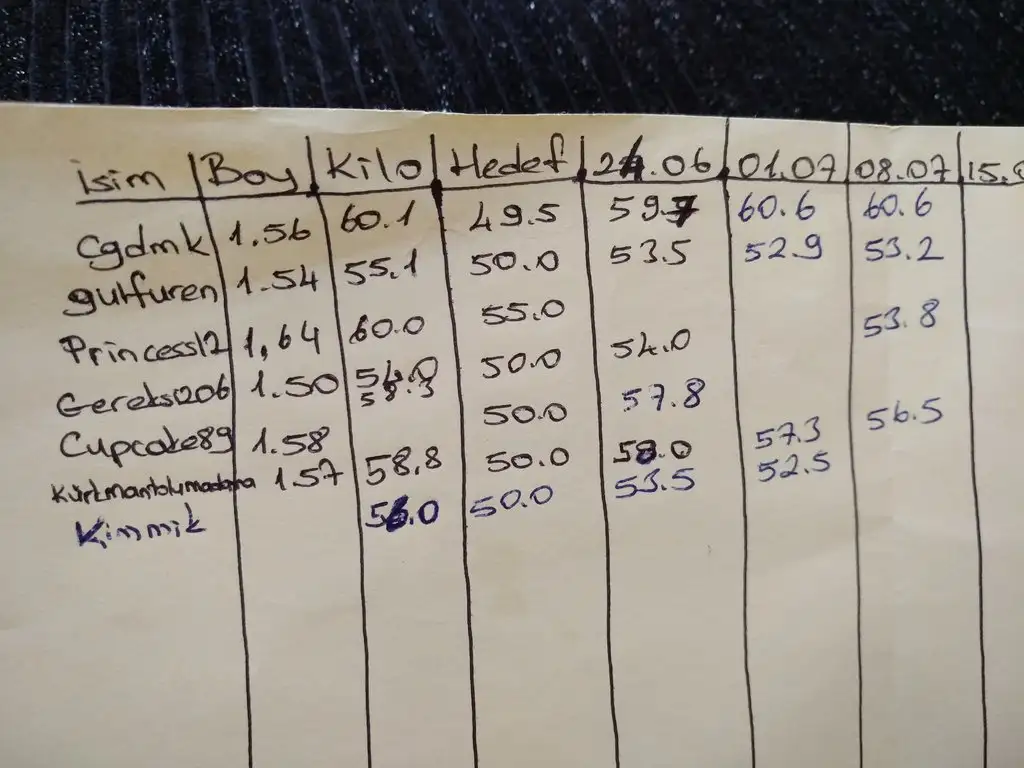 isim Boy Kilo Hedef 24.06 01.07 08.07 15.
Cgdmk 1.56 60.1 49.5 59.7 60.6 60.6
gulfuren 1.54 55.1 50.0 53.5 52.9 53.2
Princess12 1,64 60.0 55.0
1.50 54.0 50.0 54.0 53.8
Cupcake89 1.58 58.3 50.0 57.8 57.3 56.5
1.57 58.8 50.0 58.0
Kimmik 56.0 50.0 53.5 52.5